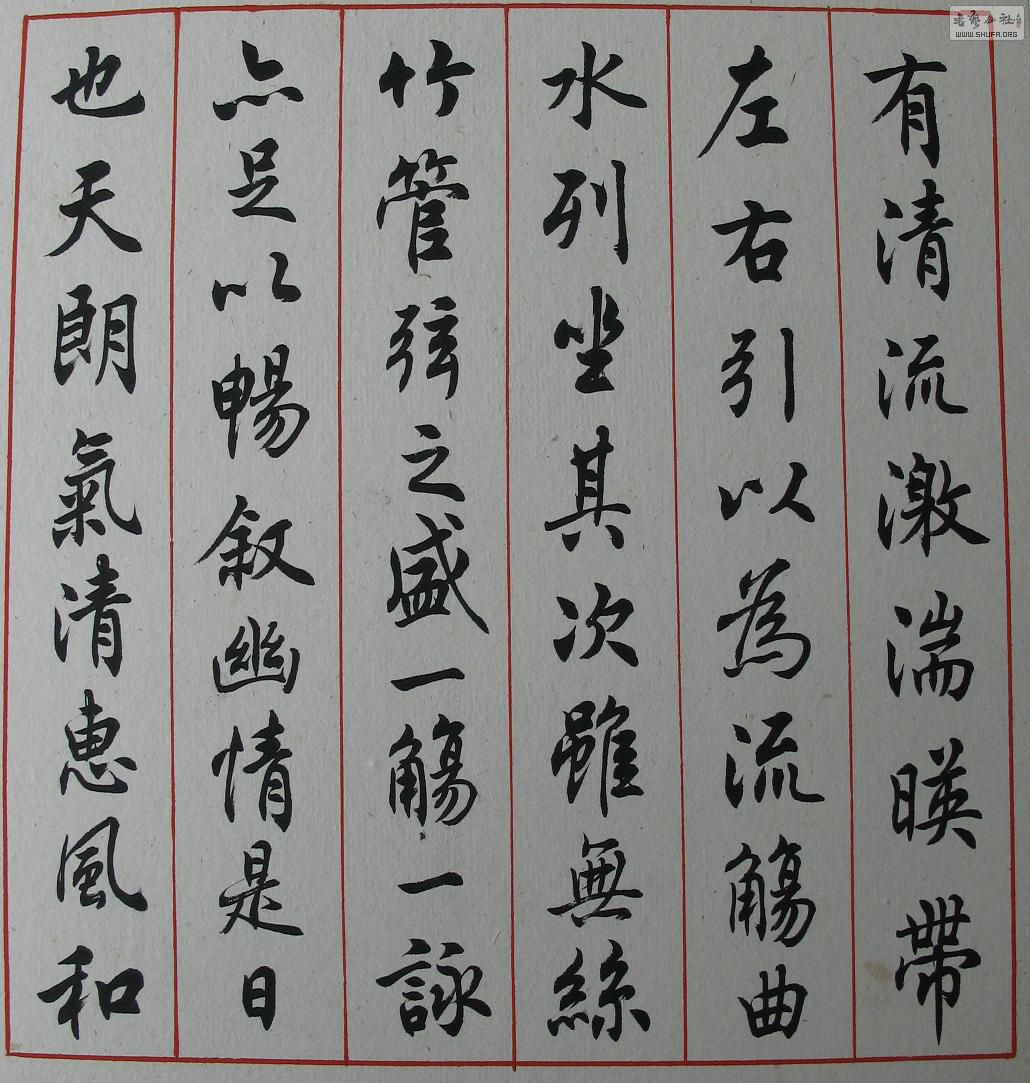 有清流激湍暎帶
左右引以為流觴曲
水列坐其次雖無絲
竹管弦之盛一觴一詠
亦足以暢敘幽情是日
也天朗氣清惠風和
书艺公社
WWW.SHUFA.ORG